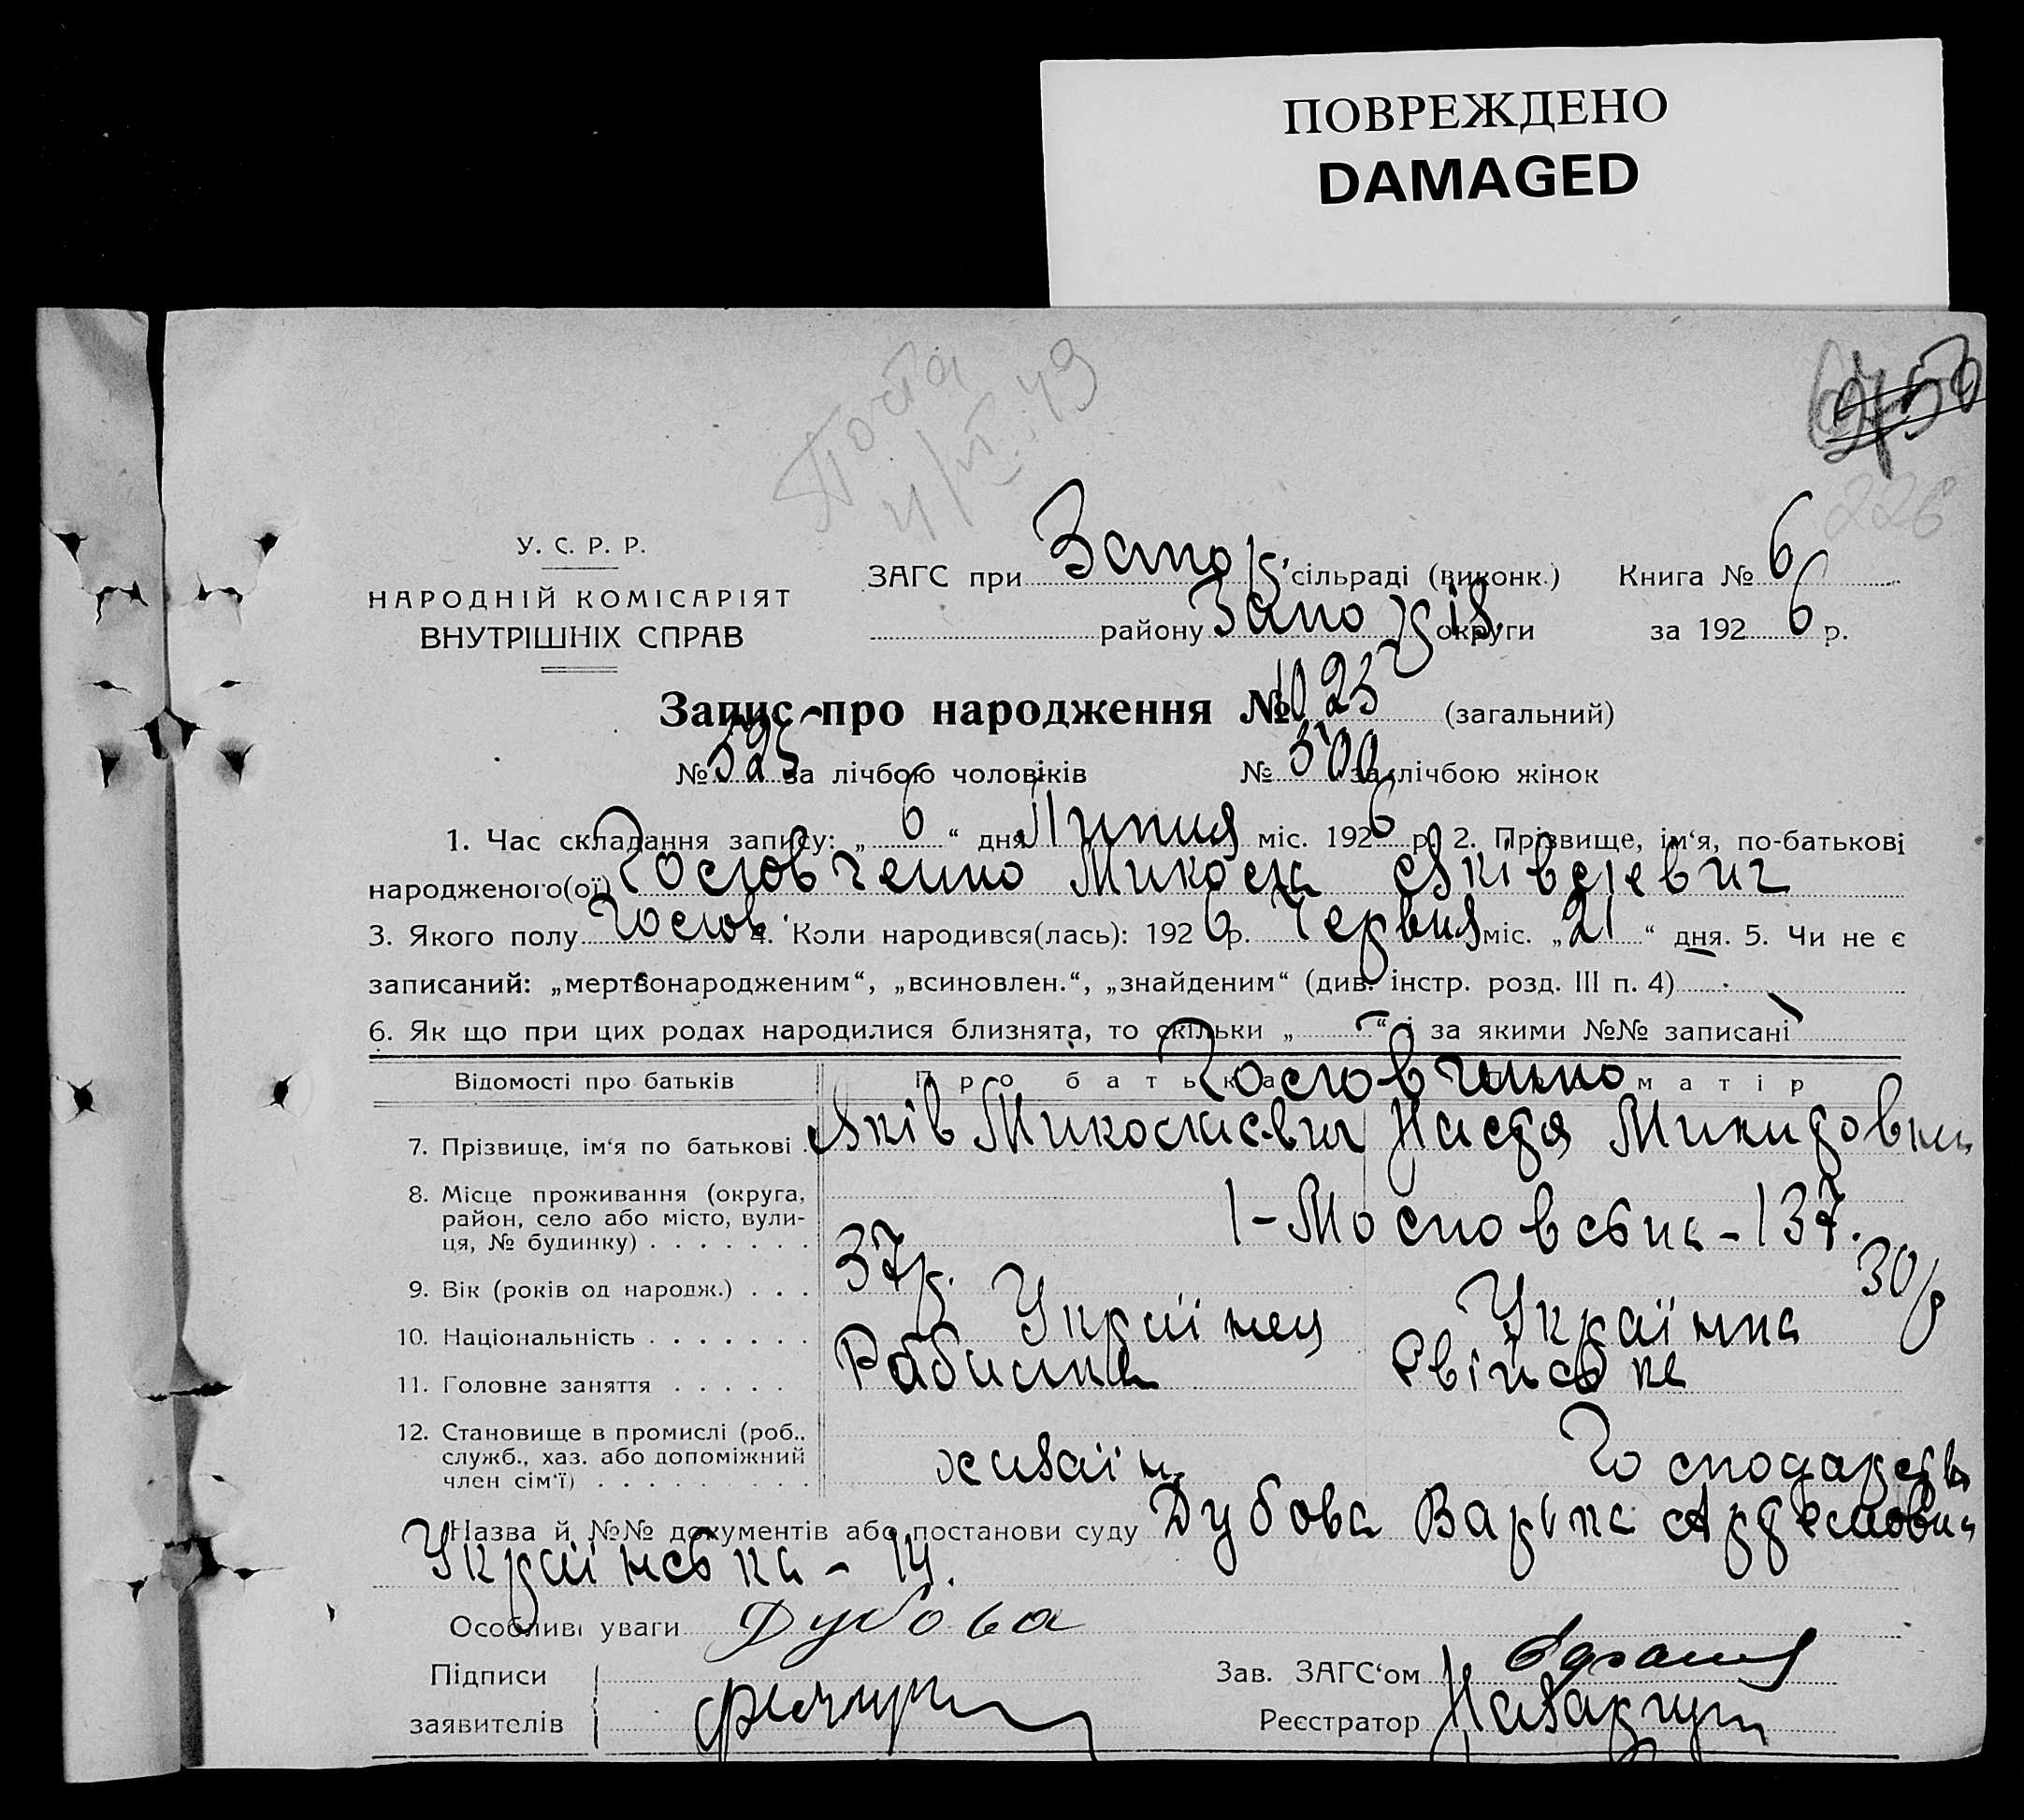 ПОВРЕЖДЕНО
DAMAGED
226
У. С. Р. Р.
НАРОДНІЙ КОМІСАРІЯТ
ВНУТРІШНІХ СПРАВ
ЗАГС при Запор. сільраді (виконк.) Книга № 6
району Запоріз. округи за 1926 р.
Запис про народження № 1023 (загальний)
№ 523 за лічбою чоловіків № 500 за лічбою жінок
1. Час складання запису: „6“ дня Липня міс. 1926 р. 2. Прізвище, ім‘я, по-батькові
народженого(ої) Головченко Микола Яківлевич
3. Якого полу Чолов. 4. Коли народився(лась): 1926 р. Червня міс. „21“ дня. 5. Чи не є
записаний: „мертвонародженим“, „всиновлен.“, „знайденим“ (див. інстр. розд. III п. 4)
6. Як що при цих родах народилися близнята, то скільки „ “ і за якими №№ записані
Відомості про батьків Про батька Головченко матір
7. Прізвище, ім‘я по батькові Яків Миколаєвич Настя Микидовна
8. Місце проживання (округа,
район, село або місто, вули-
ця, № будинку) 1-Московська-137.
9. Вік (років од народж.) 37р. 30р
10. Національність Українец Українка
11. Головне заняття Свійське
12. Становище в промислі (роб.,
служб., хаз. або допоміжний
член сім‘ї) хазаїн Господарств
Назва й №№ документів або постанови суду Дубова Варька
Українська - 14.
Особливі уваги Дубова
Підписи
заявителів
Зав. ЗАГС‘ом
Реєстратор